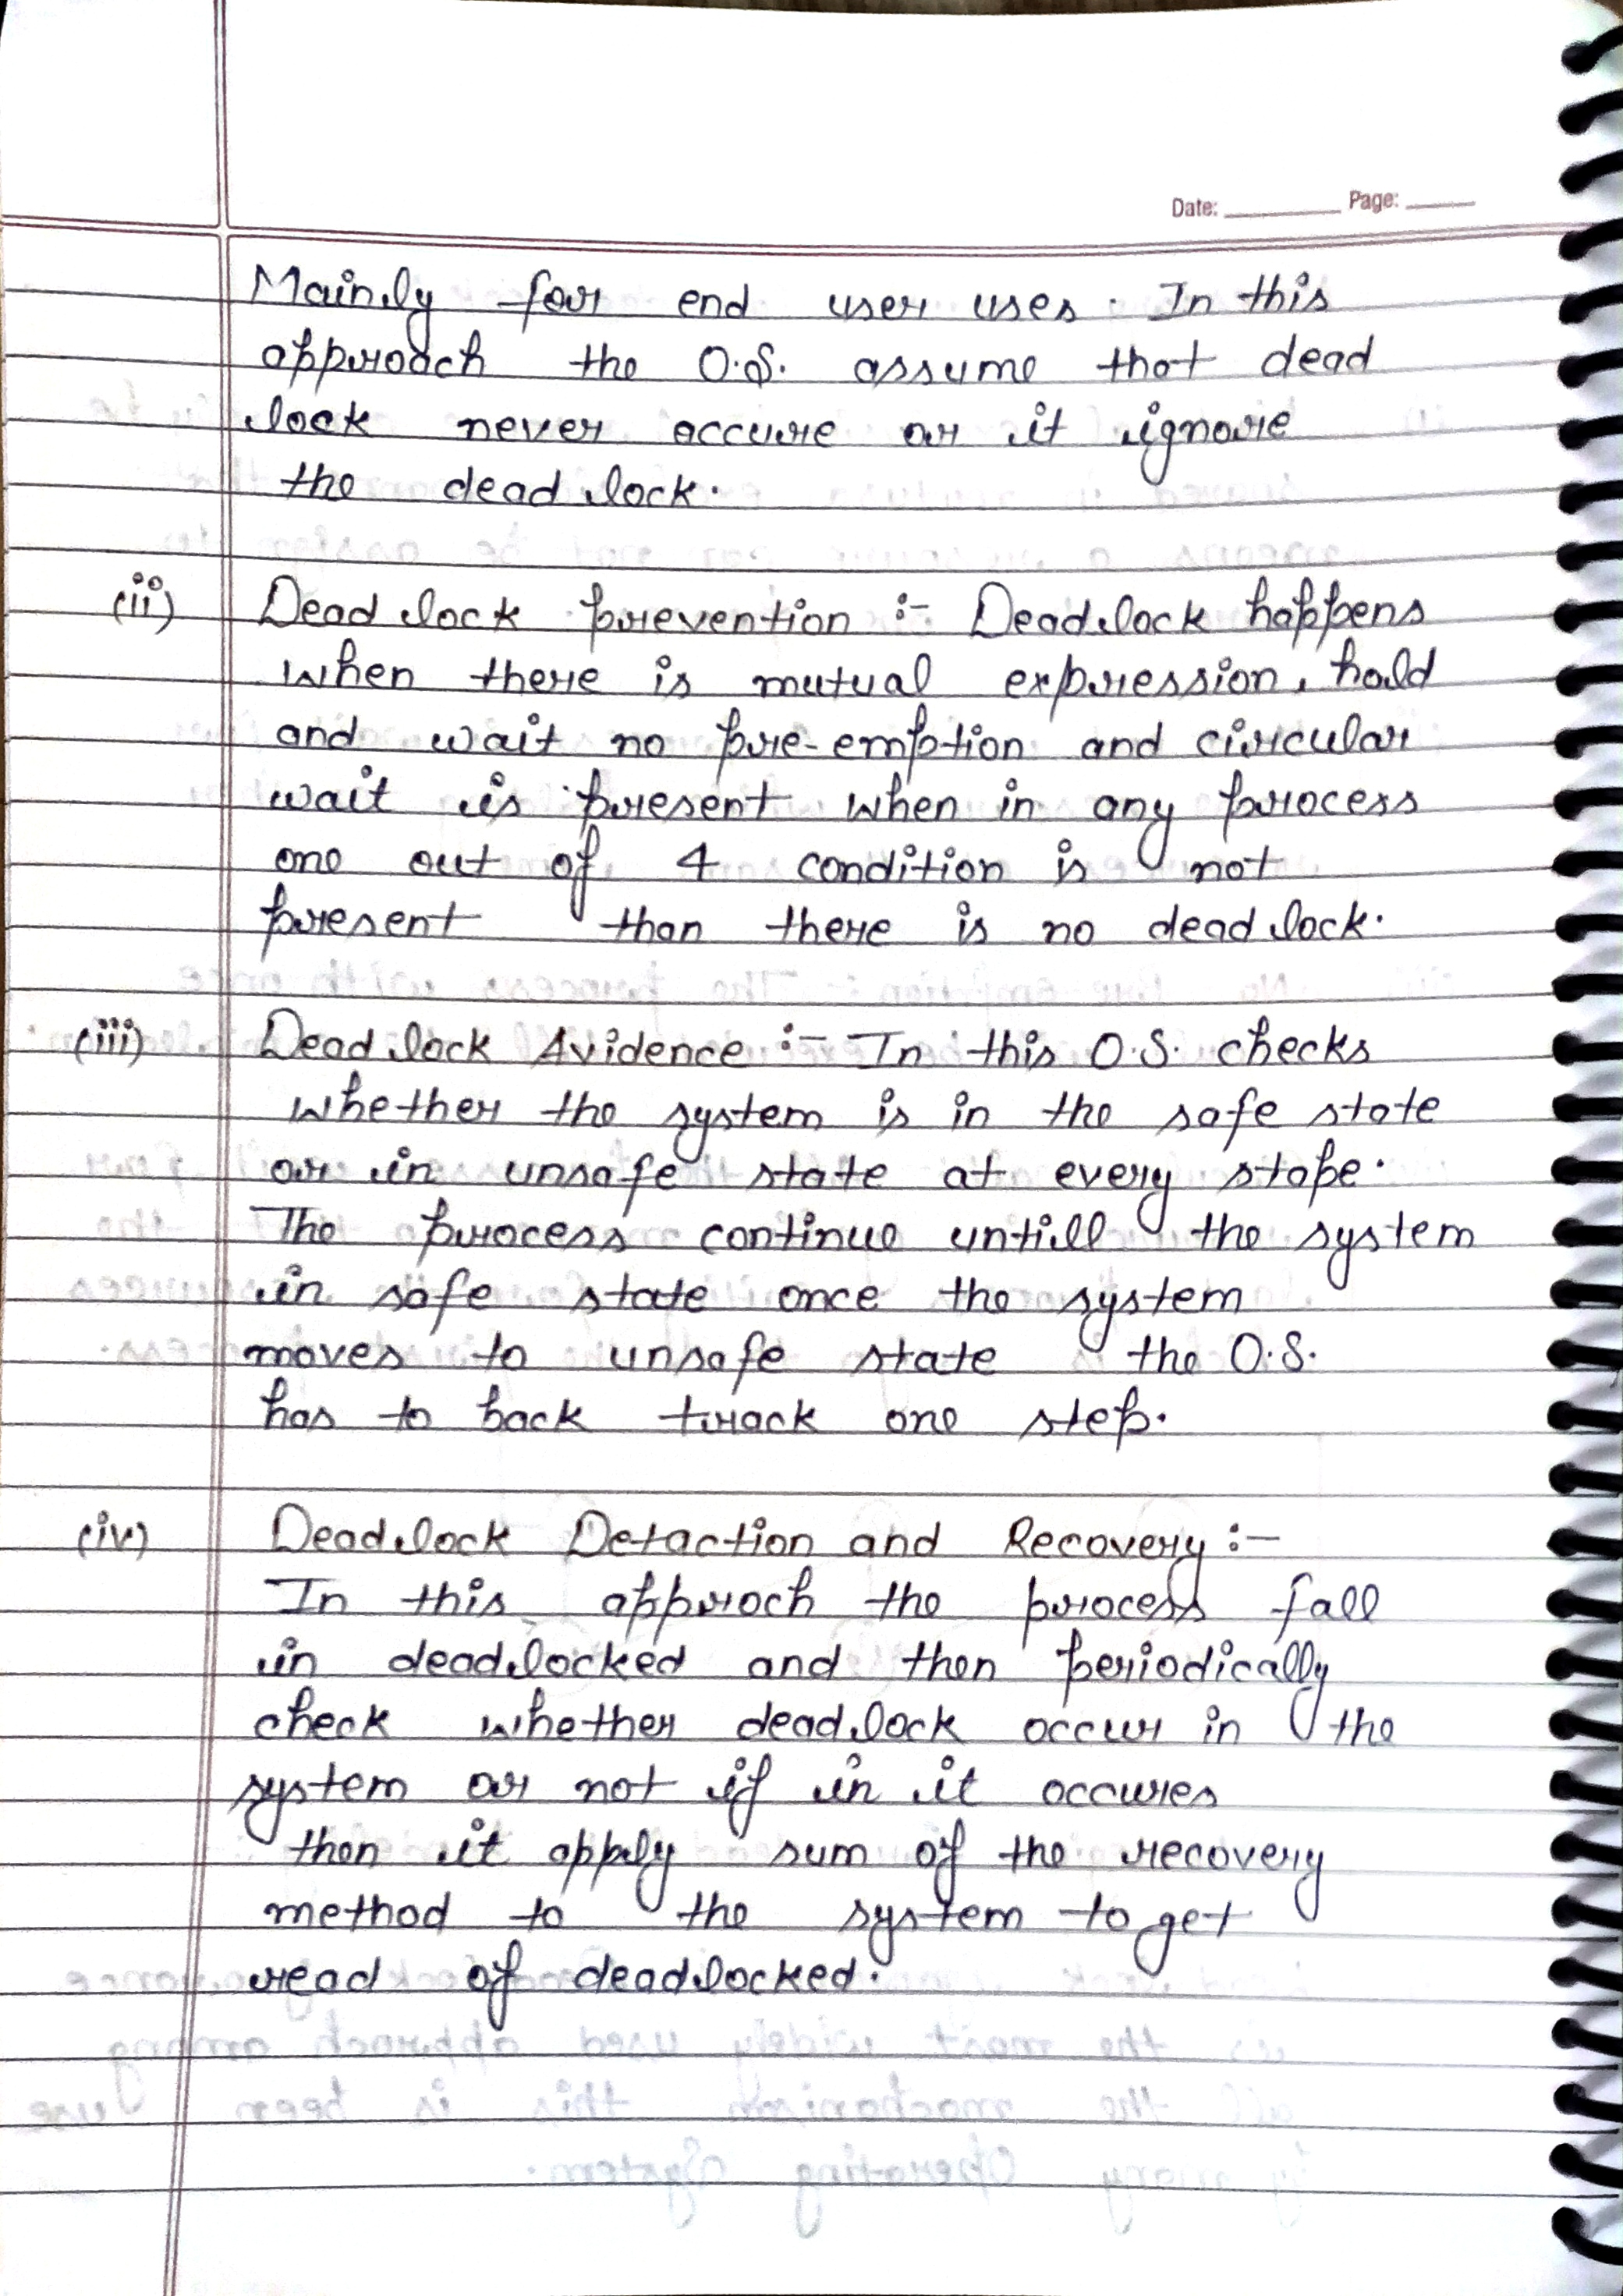 Date: Page:
Mainly for end user uses. In this
approach the O.S. assume that dead
lock never accure or it ignore
the dead lock.
(ii) Dead lock prevention :- Deadlock happens
when there is mutual expression, hold
and wait no pre-emption and circular
wait is present when in any process
one out of 4 condition is not
present than there is no dead lock.
(iii) Dead lock Avidence :- In this O.S. checks
whether the system is in the safe state
or in unsafe state at every stape.
The process continue untill the system
in safe state once the system
moves to unsafe state the O.S.
has to back track one step.
(iv) Deadlock Detaction and Recovery :-
In this approch the process fall
in deadlocked and then periodically
check whether deadlock occur in the
system or not if in it occures
then it apply sum of the recovery
method to the system to get
read of deadlocked.